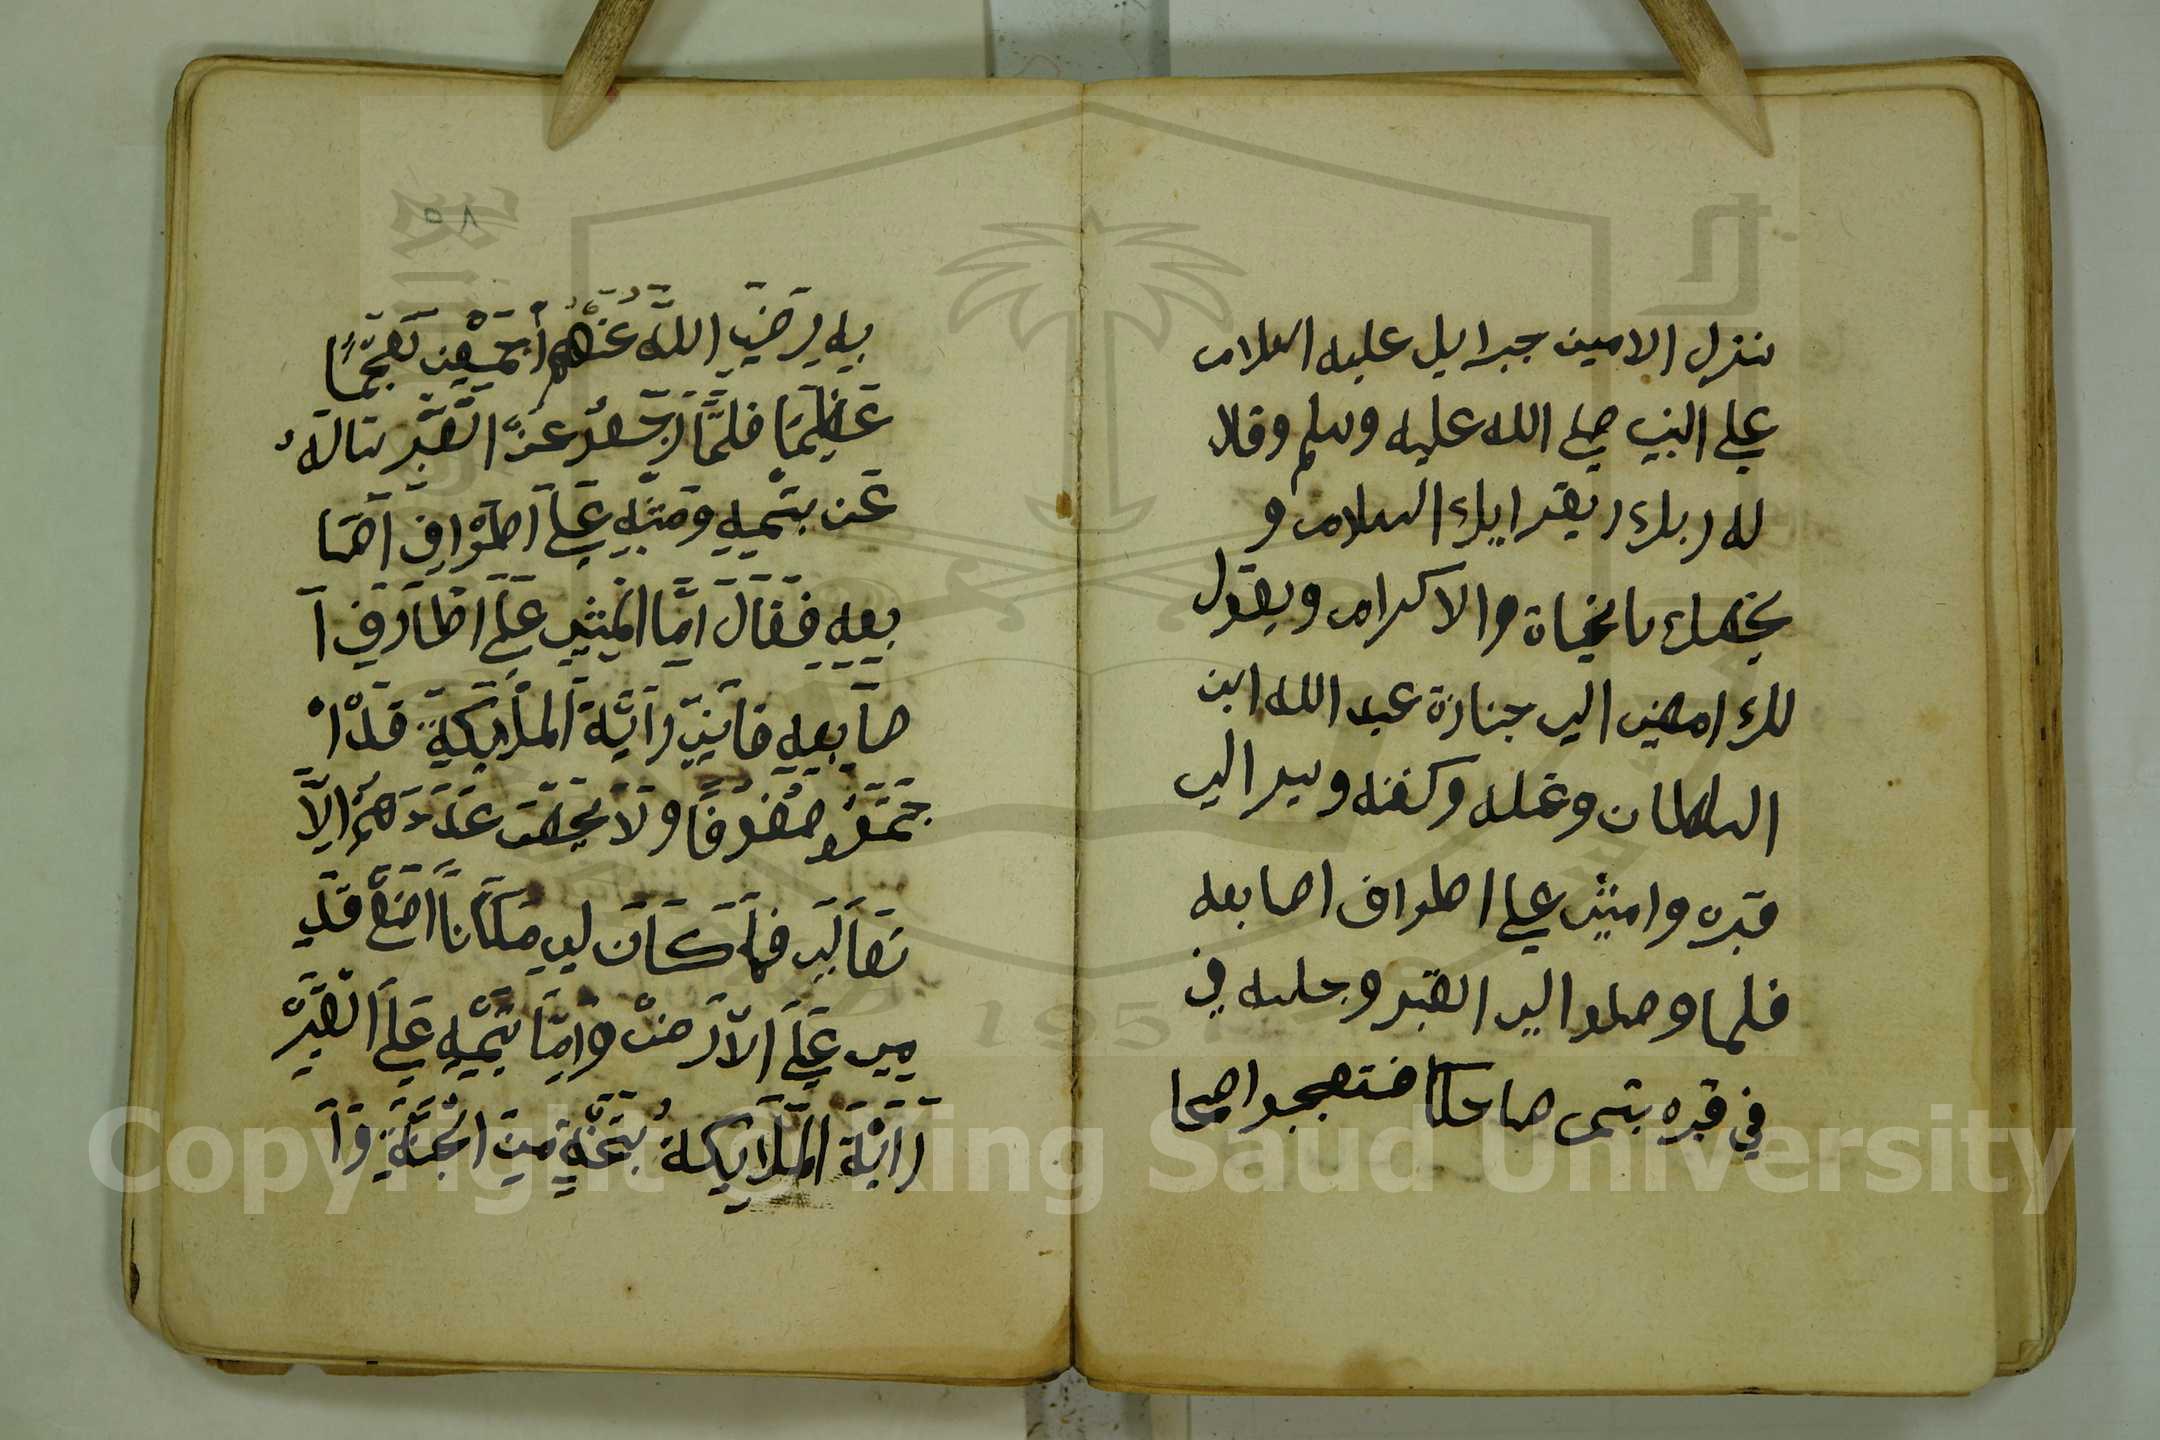 ننزل الامين جبرايل عليه السلام
علي النبي صلي الله عليه وسلم وقلا
له ربك يقر ايك السلام و
يخصك بالتحياة والاكرام ويقول
لك امضي الي جنازة عبد الله ابن
السلطان وغسله وكفنه وسر الي
قبره وامشي علي اطراف اصابعه
فلما وصلوا الي القبر وجلسه في
في قبره بتسم ضاحكا فتعجبوا اصحا
٥٨
بِه رَضِيَ اللَّه عَنْهُم أَجْمَعِين تَعَجُّبًا
عَظِيمًا فلمَّا رَجَعُو عَن القَبْر سَالَهُ
عَن بتسْمِه ومَشْيِه عَلَي اَطْرَافِ اَصَا
بِعِه فَقَالَ اَمَّا المَشِي عَلَي اطَارَفِ اَ
صَابِعِه فَاَنِي رَاَيْة المَلَايِكَة قَدْ ا
جْتَمَعُو صُفُوفًا ولَا يُحْصَى عَدَدَهُمْ اِلَّا
تعَالَي فلَم كَانَ لِي مَكَانًا اَضَعُ قَدَ
مِي عَلَي الاَرَضْ وَاَمَّا بتَسْمِه عَلَي القَبْر
رَاَيْة المَلَايِكة بتحْفِة مِن الجَنَّة وَاَ
1957
Copyright © King Saud University